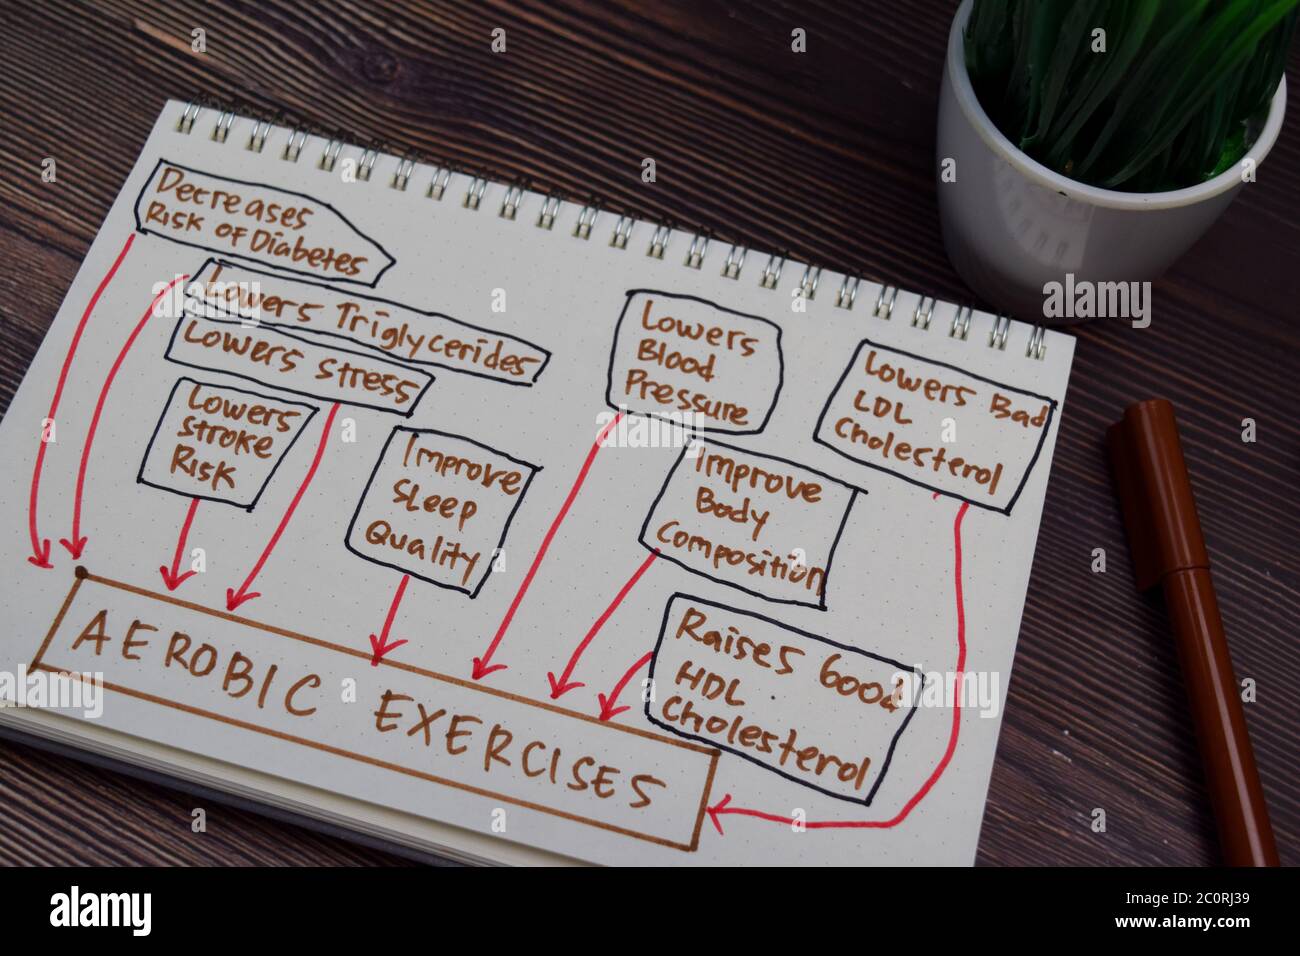 Decreases
Risk of Diabetes
Lowers Triglycerides
Lowers stress
Lowers
Stroke
Risk
Improve
Sleep
Quality
Lowers
Blood
Pressure
Improve
Body
Composition
Lowers Bad
LDL
Cholesterol
Raises Good
HDL
Cholesterol
AEROBIC EXERCISES
a
alamy
alamy
Image ID: 2C0RJ39
www.alamy.com